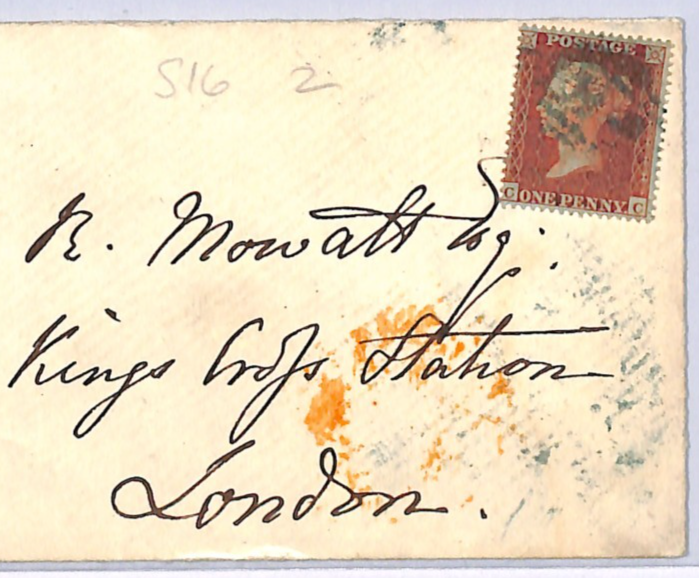 S16 2
POSTAGE
C ONE PENNY C
R. Mowatt Esq.
Kings Cross Station
London.